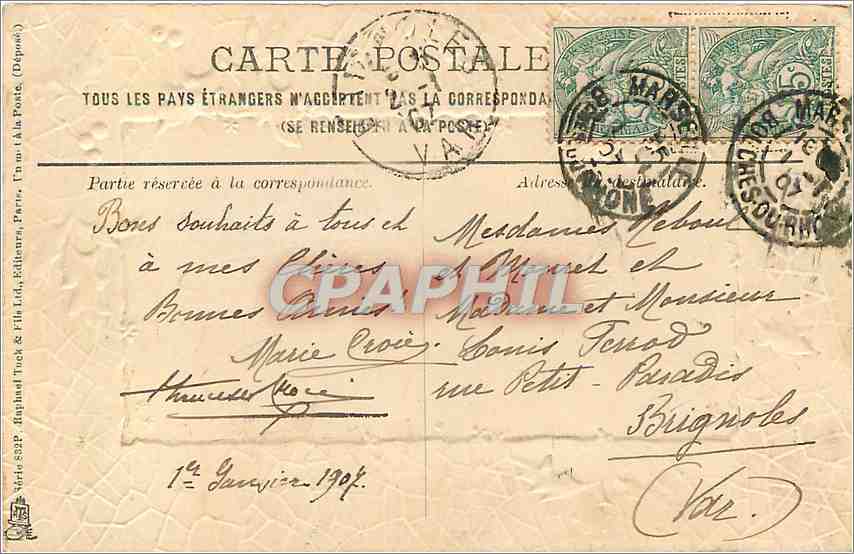 CARTE POSTALE
TOUS LES PAYS ÉTRANGERS N'ACCEPTENT PAS LA CORRESPONDA
(SE RENSEIGNER A LA POSTE)
Partie réservée à la correspondance.
Adresse du destinataire.
Bons souhaits à tous et
à mes Chères
Bonnes Amies
Marie Croié.
1er Janvier 1907.
Mesdames Reboul
et Monret et
Madame et Monsieur
Louis Ferrod
rue Petit-Paradis
Brignoles
(Var.)
Série 832P. Raphael Tuck & Fils Ltd., Editeurs, Paris. Un mot à la Poste. (Déposé)
MARSEILLE
BOUCHES-DU-RHONE
MARS
BOUCHES-DU-RHO
VAR
5c
POSTES
CPAPHIL